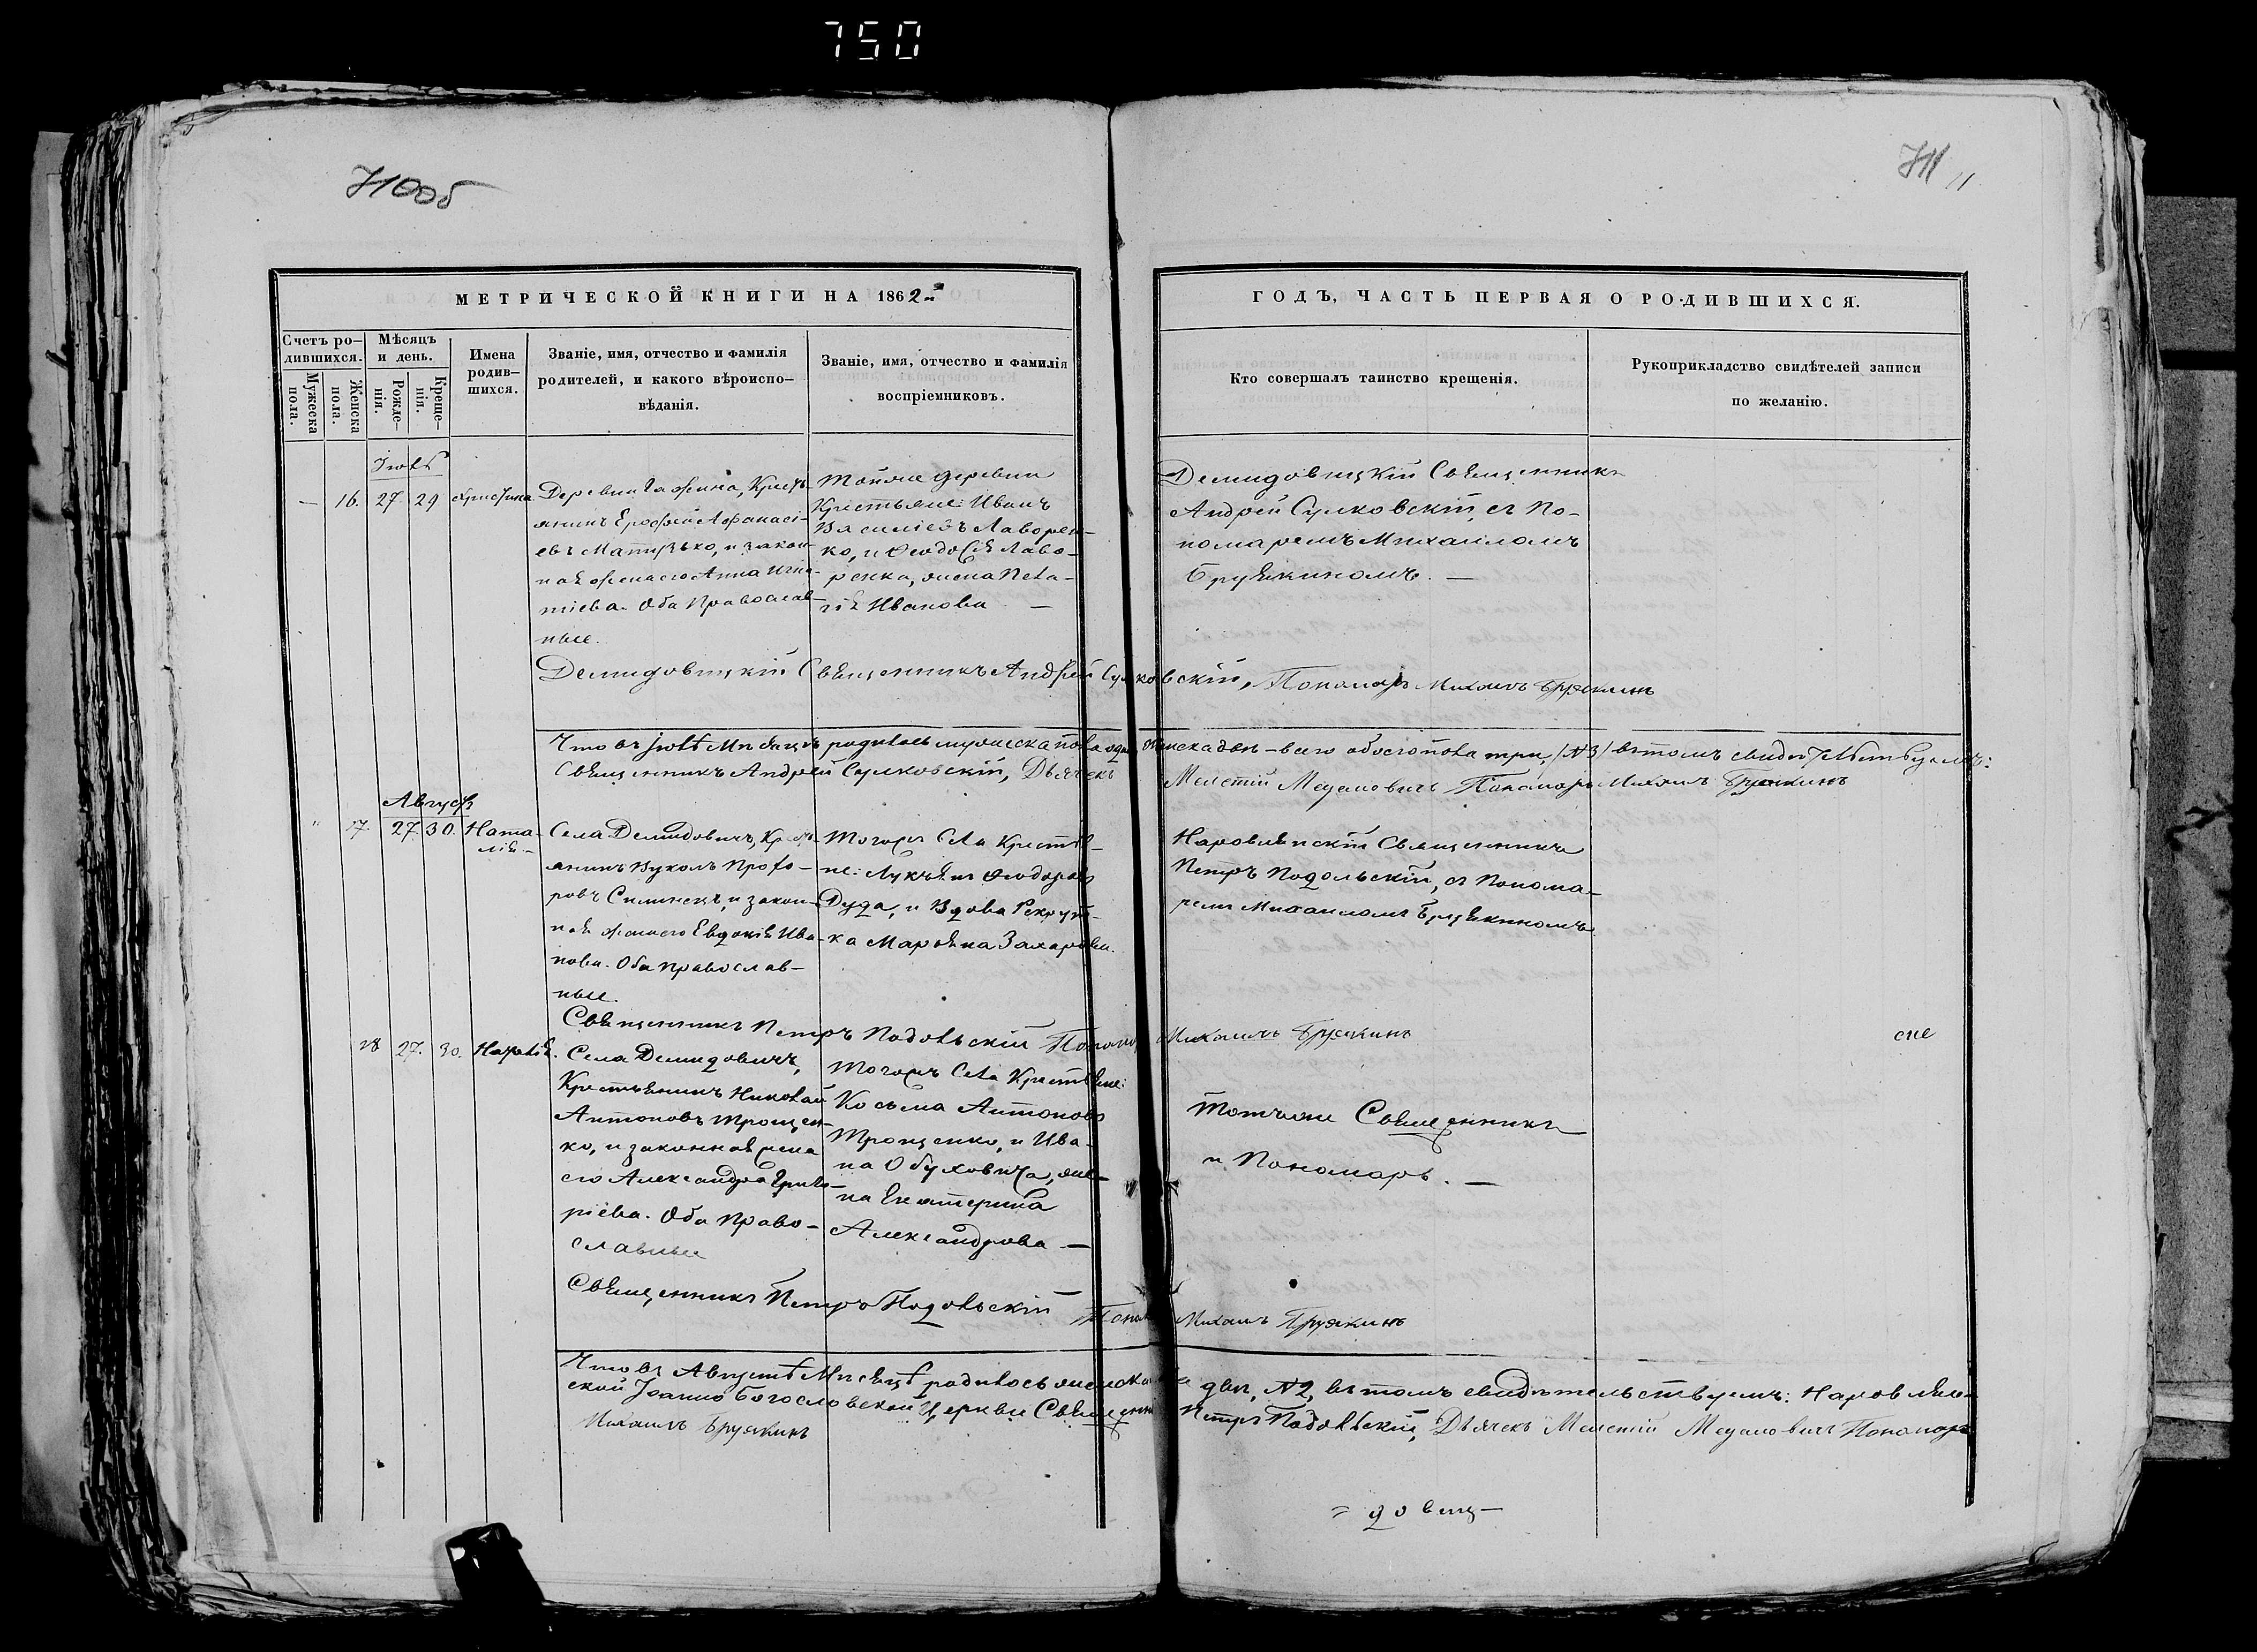 750
710об
711
11
МЕТРИЧЕСКОЙ КНИГИ НА 1862й
ГОДЪ, ЧАСТЬ ПЕРВАЯ О РОДИВШИХСЯ.
Счетъ ро-
дившихся.
Мужеска пола.
Женска пола.
Мѣсяцъ
и день.
Рожде-
нія.
Креще-
нія.
Имена
родив-
шихся.
Званіе, имя, отчество и фамилія
родителей, и какого вѣроиспо-
вѣданія.
Званіе, имя, отчество и фамилія
воспріемниковъ.
Кто совершалъ таинство крещенія.
Рукоприкладство свидѣтелей записи
по желанію.
— 16. 27 29
Деревни
янинъ Ерофей Афанасі-
евъ и закон-
ная жена его Анна Игна-
тіева. Оба Православ-
ные.
Тойже деревни
Крестьяне: Иванъ
Василіевъ Лаворен-
ко, и Ѳеодосія Лаво-
ренка, жена Пела-
гія Иванова —
Демидовицкій Священникъ
Андрей Сулковскій, съ По-
номаремъ Михаиломъ
Бруякиномъ. —
Демидовицкій Священникъ Андрей Сулковскій, Пономарь Михаилъ Бруякинъ
Что въ Іюлѣ Мѣсяцѣ родилось мужеска пола одинъ женска двѣ — всего обоего пола три, (№3) въ томъ свидѣтельствуемъ:
Священникъ Андрей Сулковскій, Дьячекъ Мелетій Пономарь Михаилъ Бруякинъ
Август
" 17 27 30. Ната-
лія. —
Села Демидовичъ, Крест-
янинъ Вуколъ Прохо-
ровъ и закон-
ная жена его Евдокія Ива-
нова. Оба православ-
ные.
Тогожъ Села Крестья-
не: Лукьянъ Ѳеодоровъ
Дуда, и Вдова Рекрут-
ка Марьяна Захарова.
Наровлянскій Священникъ
Петръ Подольскій, съ Понома-
ремъ Михаиломъ Бруякиномъ
Священникъ Петръ Подольскій Пономарь Михаилъ Бруякинъ
18 27. 30. Наталія.
Села Демидовичъ,
Крестьянинъ Николай
Антоновъ Трощен-
ко, и законная жена
его Александра Григо-
ріева. Оба Право-
славные
Тогожъ Села Крестьяне:
Косьма Антоновъ
Трощенко, и Ива-
на Обуховича, же-
на Екатерина
Александрова —
Тотъже Священникъ
и Пономарь. —
Священникъ Петръ Подольскій Пономарь Михаилъ Бруякинъ
Что въ Августѣ Мѣсяцѣ родилось женска пола двѣ, №2, въ томъ свидѣтельствуемъ: Наровлян-
ской Іоанно Богословской Церкви Священникъ Петръ Подольскій, Дьячекъ Мелетій Пономарь
Михаилъ Бруякинъ
= довиц —